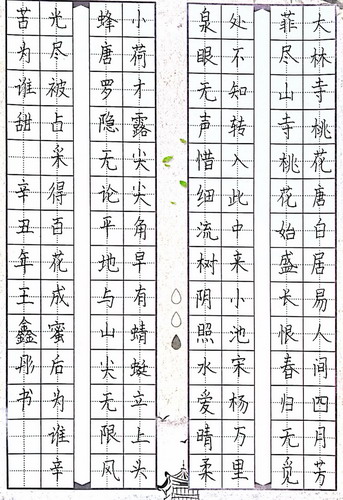 大林寺桃花唐白居易人间四月芳
菲尽山寺桃花始盛长恨春归无觅
处不知转入此中来小池宋杨万里
泉眼无声惜细流树阴照水爱晴柔
小荷才露尖尖角早有蜻蜓立上头
蜂唐罗隐无论平地与山尖无限风
光尽被占采得百花成蜜后为谁辛
苦为谁甜 辛丑年王鑫彤书